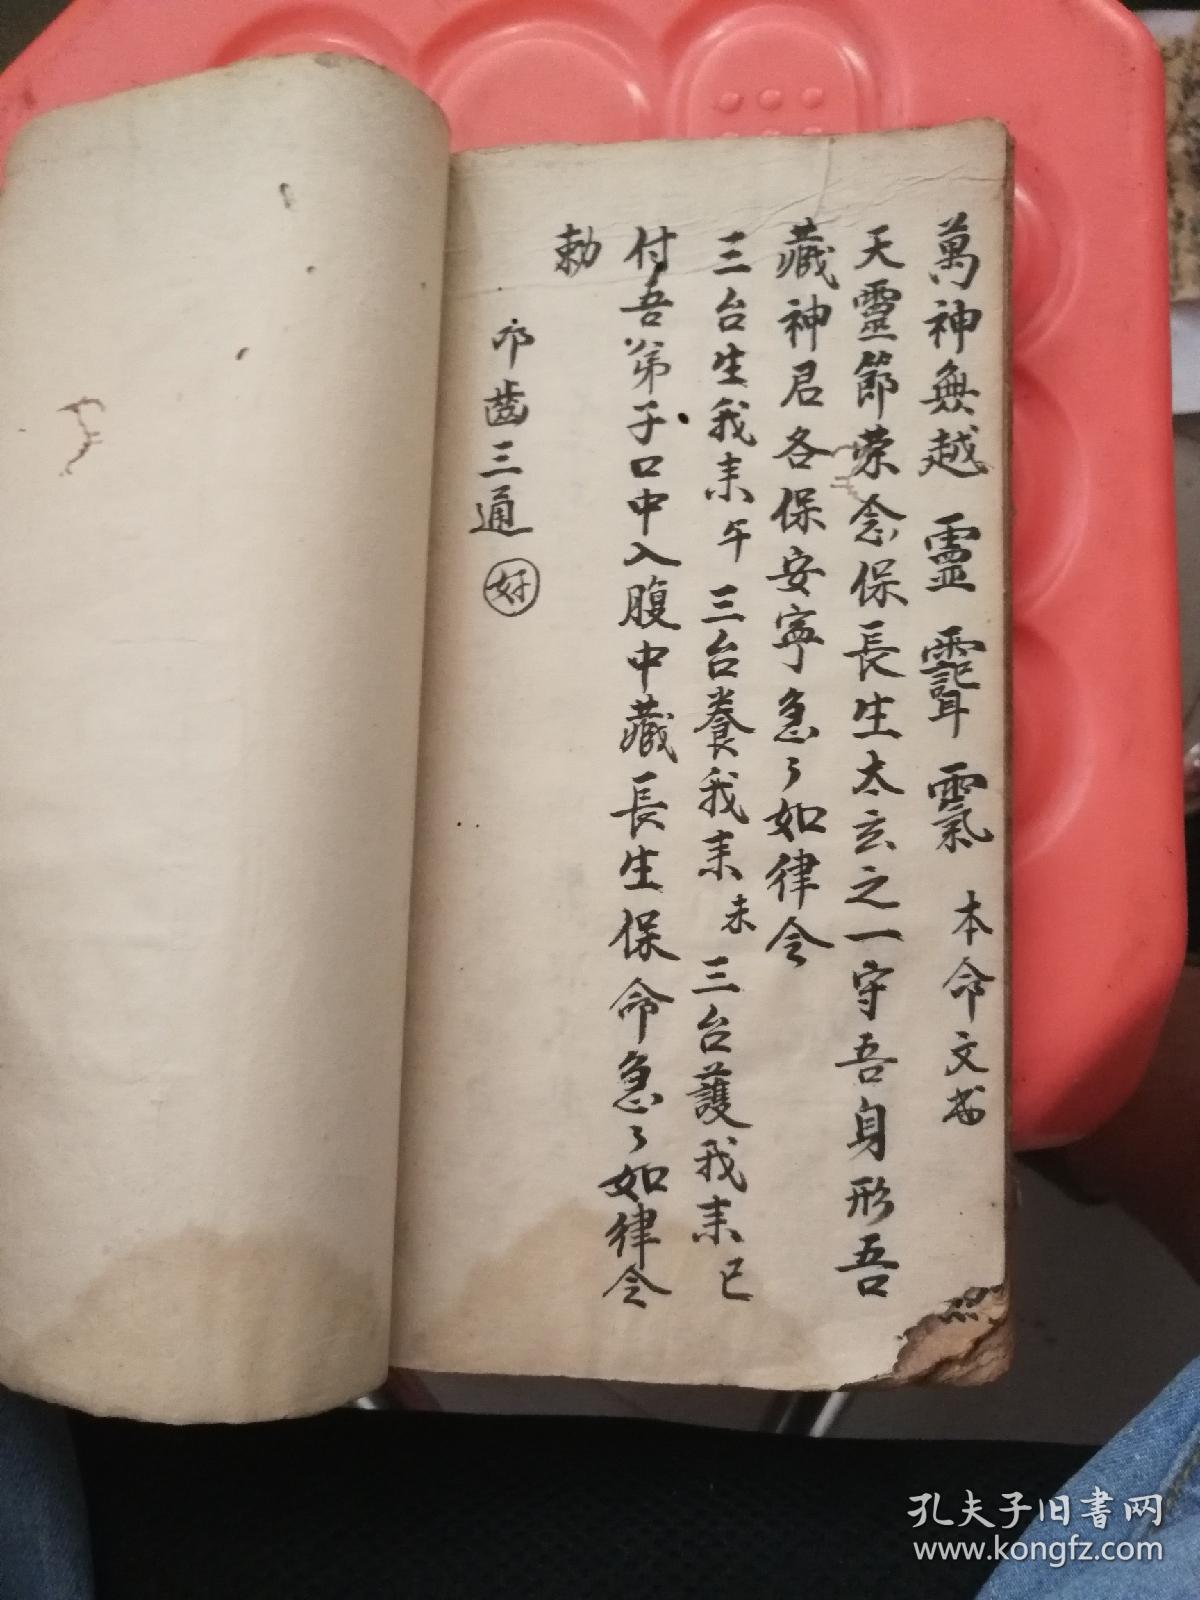 萬神無越 靈 本命文书
天靈節荣念保長生太玄之一守吾身形吾
藏神君各保安寧急々如律令
三台生我来午三台養我来未三台護我来已
付吾弟子口中入腹中藏長生保命急々如律令
勅
叩齒三通 好
孔夫子旧書网
www.kongfz.com